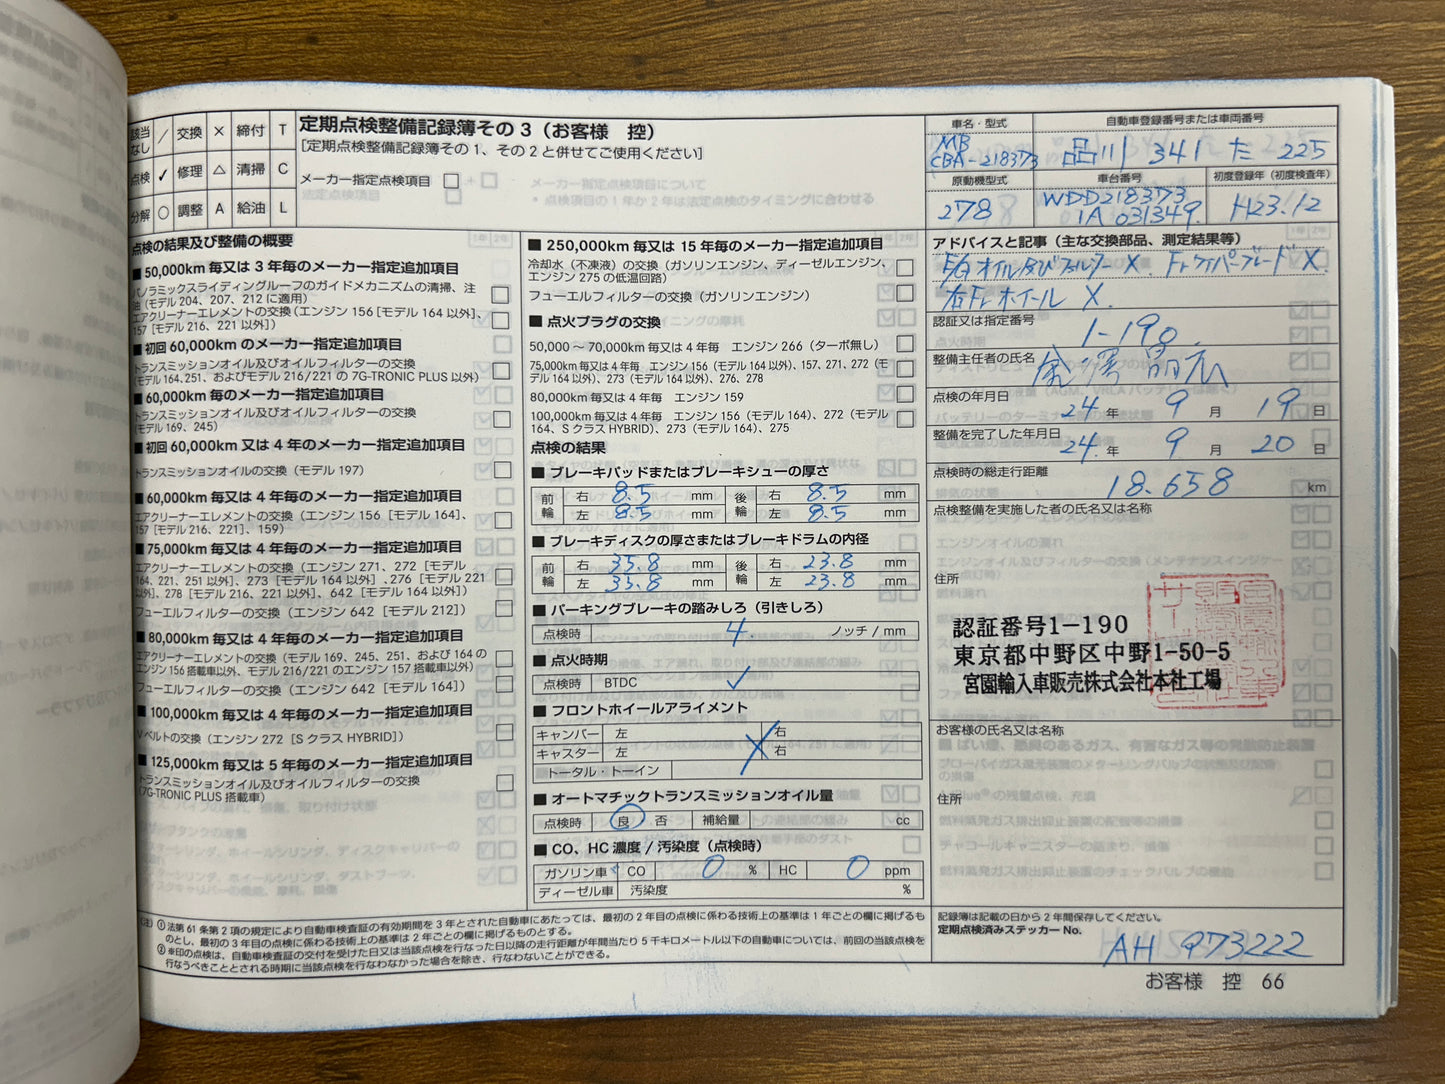 該当なし ／ 交換 × 締付 T
点検 ✓ 修理 △ 清掃 C
分解 ○ 調整 A 給油 L
定期点検整備記録簿その3（お客様 控）
[定期点検整備記録簿その1、その2と併せてご使用ください]
メーカー指定点検項目 □
車名・型式
MB
CBA-218373
自動車登録番号または車両番号
品川 341 た 225
原動機型式
278
車台番号
WDD218373
1A 031349
初度登録年（初度検査年）
H23.12
点検の結果及び整備の概要
■ 50,000km 毎又は 3 年毎のメーカー指定追加項目
パノラミックスライディングルーフのガイドメカニズムの清掃、注
油（モデル 204、207、212 に適用）
エアクリーナーエレメントの交換（エンジン 156 [モデル 164 以外]、
157 [モデル 216、221 以外]）
■ 初回 60,000km のメーカー指定追加項目
トランスミッションオイル及びオイルフィルターの交換
（モデル 164､251、およびモデル 216/221 の 7G-TRONIC PLUS 以外）
■ 60,000km 毎のメーカー指定追加項目
トランスミッションオイル及びオイルフィルターの交換
（モデル 169、245）
■ 初回 60,000km 又は 4 年毎のメーカー指定追加項目
トランスミッションオイルの交換（モデル 197）
■ 60,000km 毎又は 4 年毎のメーカー指定追加項目
エアクリーナーエレメントの交換（エンジン 156 [モデル 164]、
157 [モデル 216、221]、159）
■ 75,000km 毎又は 4 年毎のメーカー指定追加項目
エアクリーナーエレメントの交換（エンジン 271、272 [モデル
164、221、251 以外]、273 [モデル 164 以外] 、276 [モデル 221
以外]、278 [モデル 216、221 以外]、642 [モデル 164 以外]）
フューエルフィルターの交換（エンジン 642 [モデル 212]）
■ 80,000km 毎又は 4 年毎のメーカー指定追加項目
エアクリーナーエレメントの交換（モデル 169、245、251、および 164 の
エンジン 156 搭載車以外、モデル 216/221 のエンジン 157 搭載車以外）
フューエルフィルターの交換（エンジン 642 [モデル 164]）
■ 100,000km 毎又は 4 年毎のメーカー指定追加項目
V ベルトの交換（エンジン 272 [S クラス HYBRID]）
■ 125,000km 毎又は 5 年毎のメーカー指定追加項目
トランスミッションオイル及びオイルフィルターの交換
（7G-TRONIC PLUS 搭載車）
■ 250,000km 毎又は 15 年毎のメーカー指定追加項目
冷却水（不凍液）の交換（ガソリンエンジン、ディーゼルエンジン、
エンジン 275 の低温回路）
フューエルフィルターの交換（ガソリンエンジン）
■ 点火プラグの交換
50,000 ～ 70,000km 毎又は 4 年毎 エンジン 266（ターボ無し）
75,000km 毎又は 4 年毎 エンジン 156（モデル 164 以外）、157、271、272（モ
デル 164 以外）、273（モデル 164 以外）、276、278
80,000km 毎又は 4 年毎 エンジン 159
100,000km 毎又は 4 年毎 エンジン 156（モデル 164）、272（モデル
164、S クラス HYBRID）、273（モデル 164）、275
点検の結果
■ ブレーキパッドまたはブレーキシューの厚さ
前輪 右 8.5 mm 後輪 右 8.5 mm
左 8.5 mm 左 8.5 mm
■ ブレーキディスクの厚さまたはブレーキドラムの内径
前輪 右 35.8 mm 後輪 右 23.8 mm
左 35.8 mm 左 23.8 mm
■ パーキングブレーキの踏みしろ（引きしろ）
点検時 4. ノッチ / mm
■ 点火時期
点検時 BTDC ✓
■ フロントホイールアライメント
キャンバー 左 右
キャスター 左 右
トータル・トーイン
■ オートマチックトランスミッションオイル量
点検時 良 否 補給量 cc
■ CO、HC 濃度 / 汚染度（点検時）
ガソリン車 CO 0 % HC 0 ppm
ディーゼル車 汚染度 %
アドバイスと記事（主な交換部品、測定結果等）
E/G オイル及びフィルター X. Fr ワイパーブレード X.
右Fr ホイール X.
認証又は指定番号
1-190
整備主任者の氏名
点検の年月日
24 年 9 月 19 日
整備を完了した年月日
24. 年 9 月 20 日
点検時の総走行距離
18.658 km
点検整備を実施した者の氏名又は名称
住所
認証番号1−190
東京都中野区中野1-50-5
宮園輸入車販売株式会社本社工場
お客様の氏名又は名称
住所
（注）① 法第 61 条第 2 項の規定により自動車検査証の有効期間を 3 年とされた自動車にあたっては、最初の 2 年目の点検に係わる技術上の基準は 1 年ごとの欄に掲げるも
のとし、最初の 3 年目の点検に係わる技術上の基準は 2 年ごとの欄に掲げるものとする。
② ※印の点検は、自動車検査証の交付を受けた日又は当該点検を行なった日以降の走行距離が年間当たり 5 千キロメートル以下の自動車については、前回の当該点検を
行なうべきこととされる時期に当該点検を行なわなかった場合を除き、行なわないことができる。
記録簿は記載の日から 2 年間保存してください。
定期点検済みステッカー No.
AH 973222
お客様 控 66